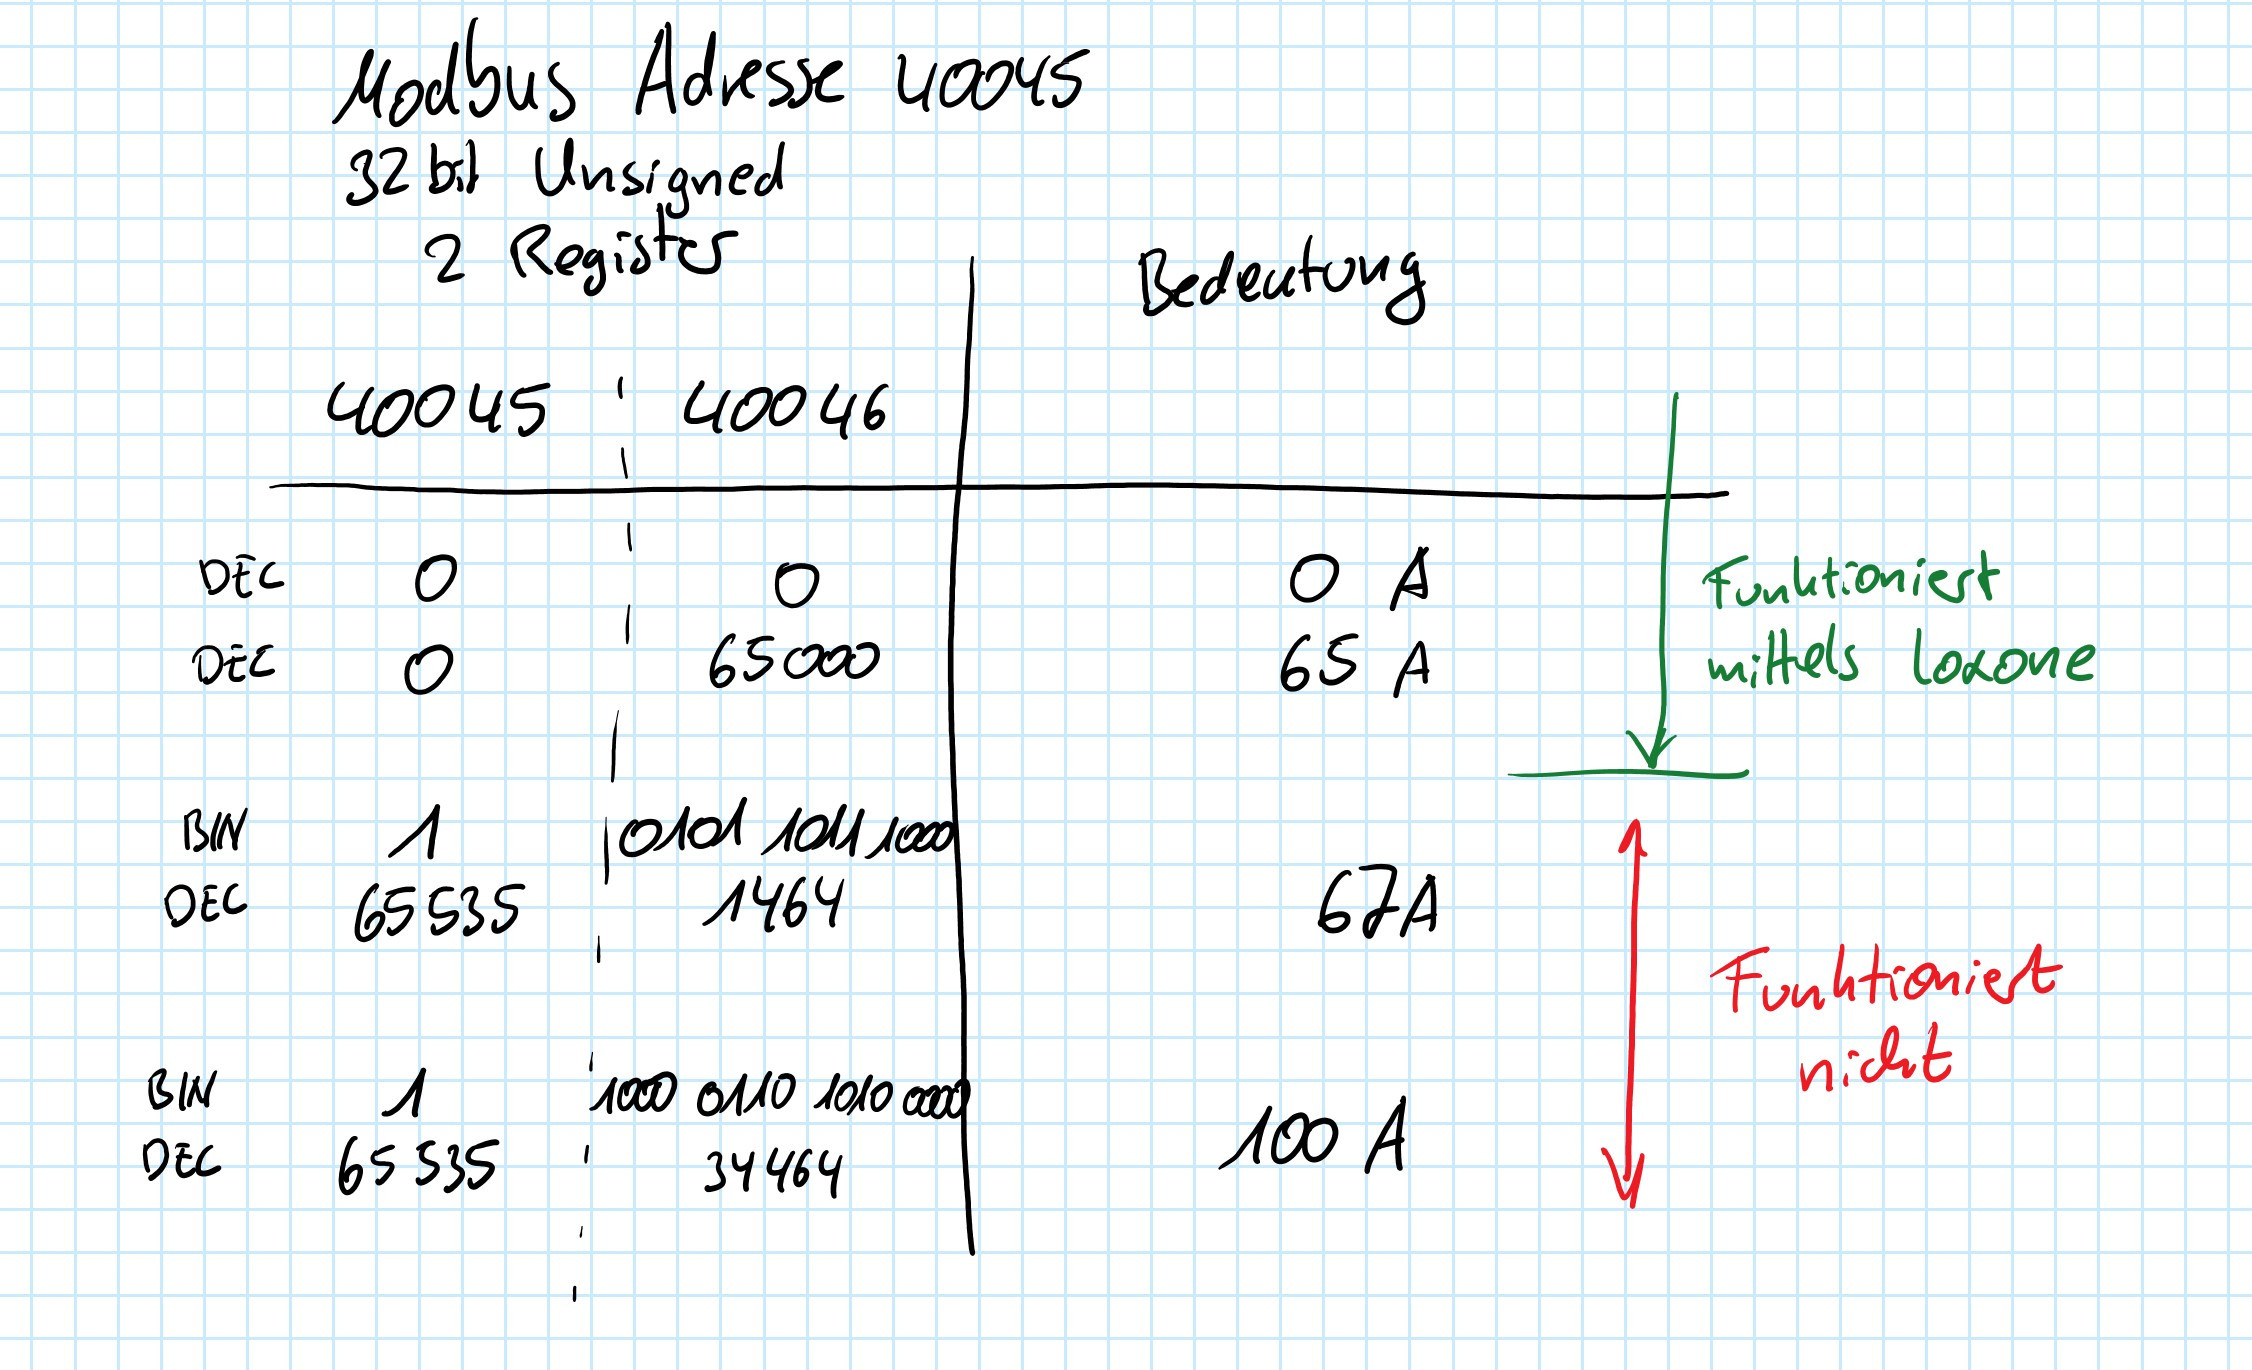 Modbus Adresse 40045
32bit Unsigned
2 Register
Bedeutung
40045 40046
DEC 0 0 0 A
DEC 0 65000 65 A
Funktioniert
mittels Loxone
BIN 1 0101 1011 1000
DEC 65535 1464 67A
Funktioniert
nicht
BIN 1 1000 0110 1010 0000
DEC 65535 34464 100 A